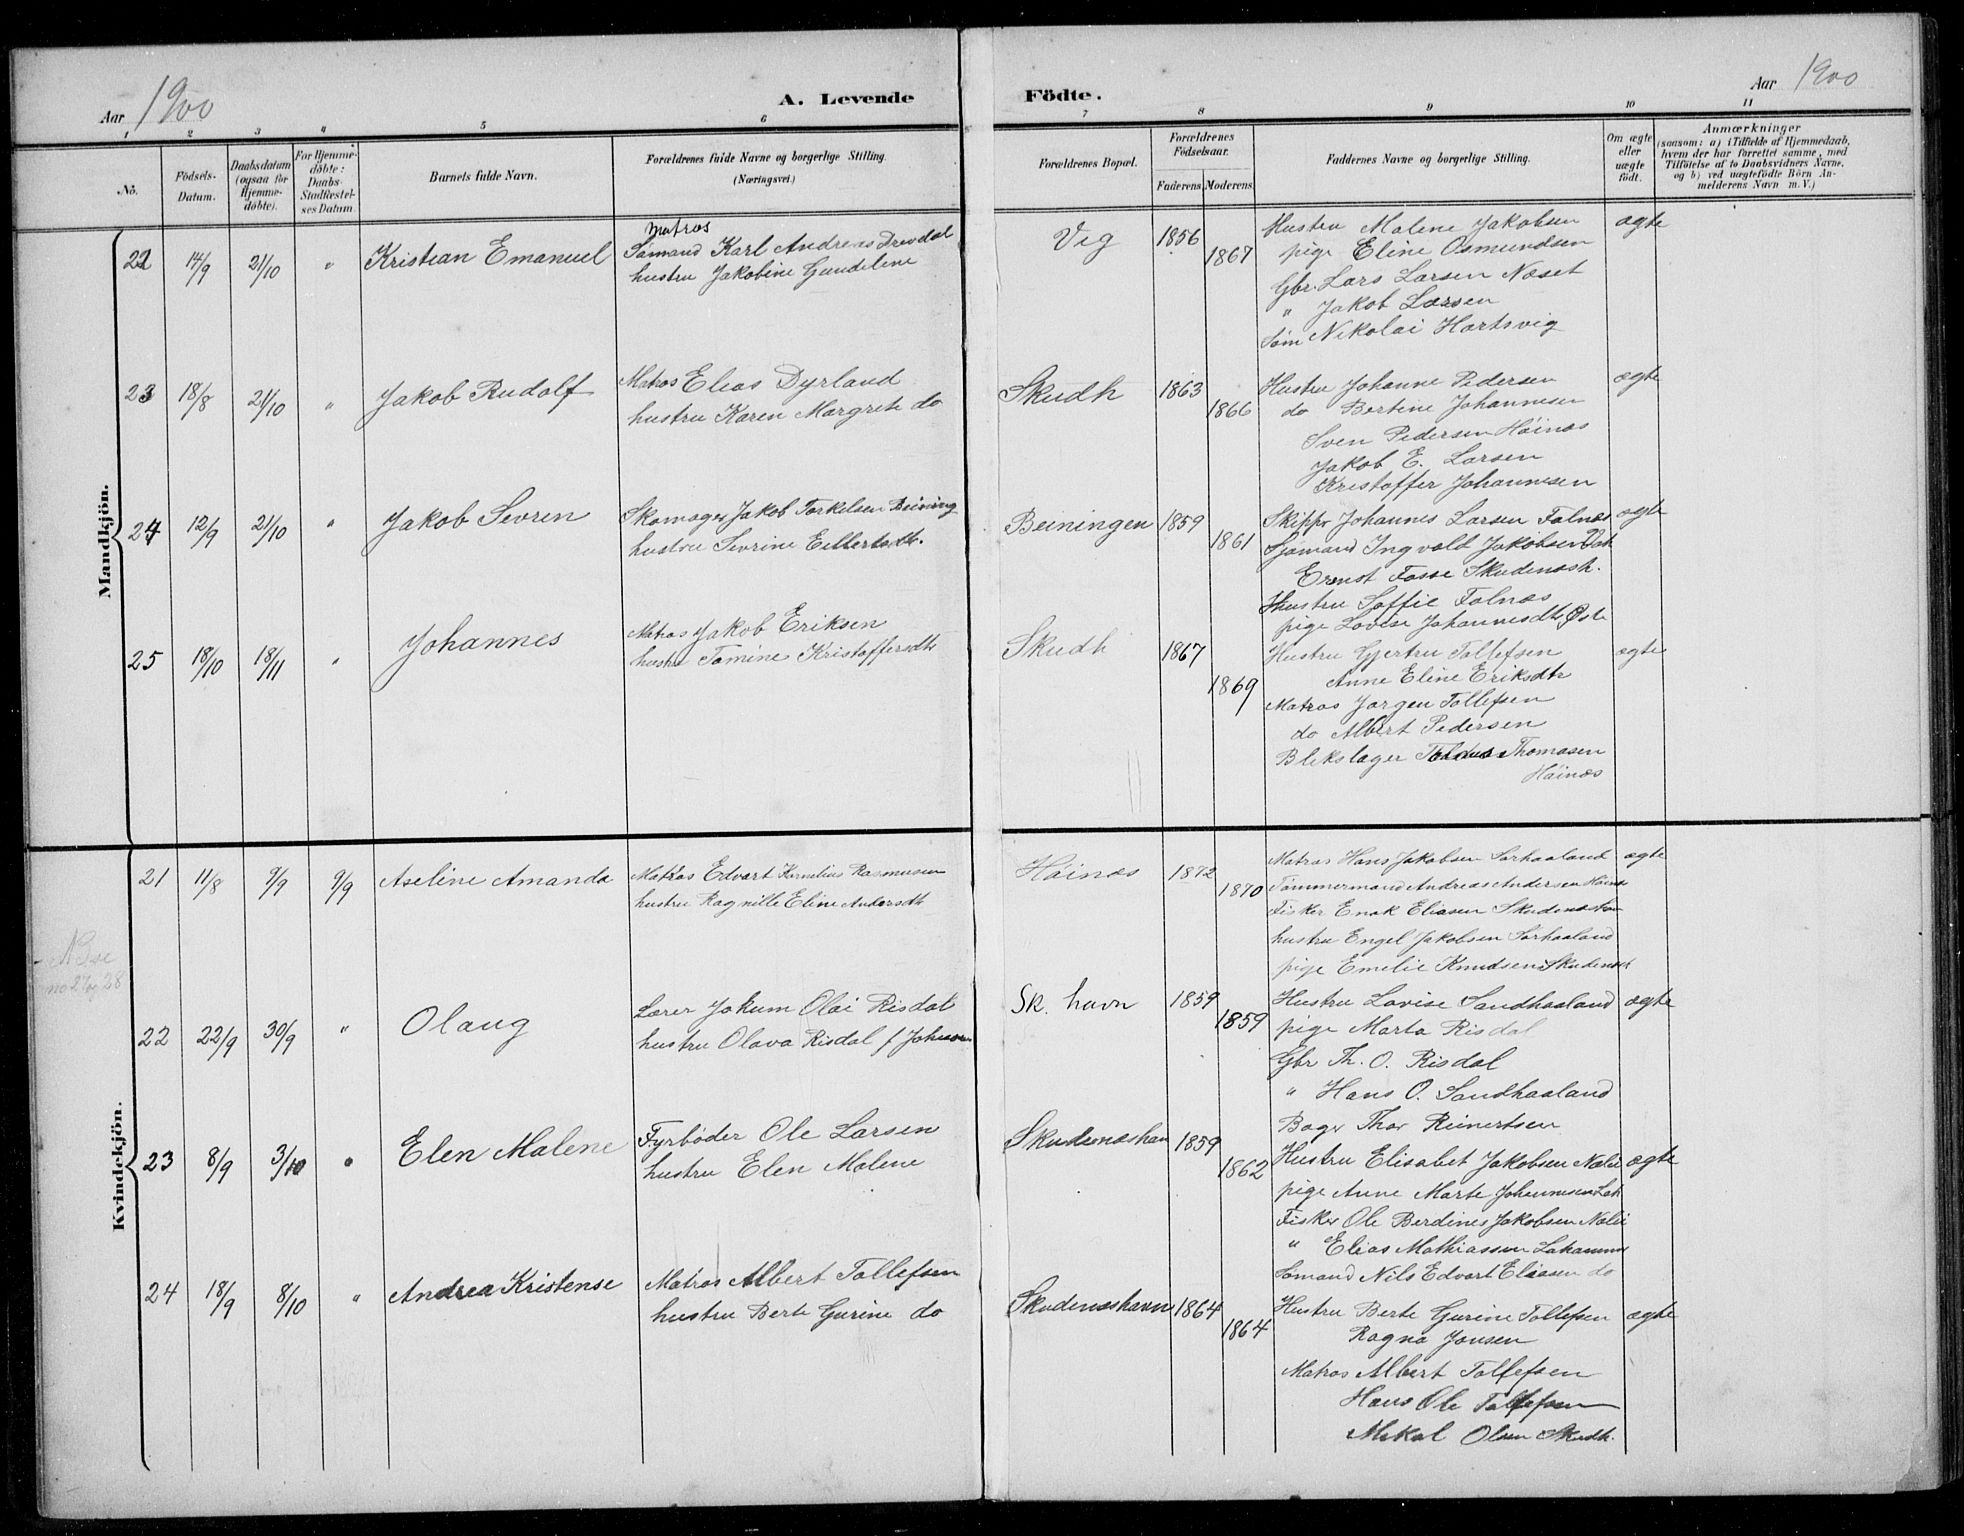 Aar 1900
A. Levende
Födte.
Aar 1900
1 2 3 4 5 6 7 8 9 10 11
No.
Födsels-
Datum.
Daabsdatum
(ogsaa for
Hjemme-
döbte).
For Hjemme-
döbte:
Daabs-
Stadfestel-
ses Datum
Barnets fulde Navn.
Forældrenes fulde Navne og borgerlige Stilling.
(Næringsvei.)
Forældrenes Bopæl.
Forældrenes
Födselsaar.
Faderens Moderens
Faddernes Navne og borgerlige Stilling.
Om ægte
eller
uægte
födt.
Anmærkninger
(saasom: a) i Tilfælde af Hjemmedaab,
hvem der har forrettet samme, med
Tilföielse af to Daabsvidners Navne,
og b) ved uægtefödte Börn An-
melderens Navn m. V.)
Mandkjön.
22 14/9 21/10 " Kristian Emanuel
Matros
Sømand Karl Andreas Drevdal
hustru Jakobine Gundeline
Vig 1856 1867
Hustru Malene Jakobsen ægte
pige Eline Osmundsen
Gbr. Lars Larsen Næset
" Jakob Larsen
Søm Nikolai Hartsvig
23 18/8 21/10 " Jakob Rudolf
Matros Elias Dyrland
hustru Karen Margrete do
Skudh 1863 1866
Hustru Johanne Pedersen ægte
do Bertine Johannesen
Sven Pedersen Høinæs
Jakob E. Larsen
Kristoffer Johannesen
24 12/9 21/10 " Jakob Sevren
Skomager Jakob Torkelsen Beining
hustru Sevrine Eilertsdtr.
Beiningen 1859 1861
Skippr Johannes Larsen Falnæs ægte
Sjømand Ingvald Jakobsen
Ernst Fosse Skudenæsh.
Hustru Soffie Falnæs
pige Lovise Johannesdtr
25 18/10 18/11 " Johannes
Matros Jakob Eriksen
hustru Tomine Kristoffersdtr
Skudh 1867 1869
Hustru Gjertru Tollefsen ægte
Anne Eline Eriksdtr
Matros Jørgen Tollefsen
do Albert Pedersen
Blikslager Thomasen
Høinæs
Kvindekjön.
21 11/8 9/9 9/9 Aseline Amanda
Matros Edvart Kornelius Rasmusen
hustru Ragnille Eline Andersdt
Høinæs 1872 1870
Matros Hans Jakobsen Sørhaaland ægte
Tømmermand Andreas Andersen Høinæs
Fisker Enok Eliasen Skudenæshavn
hustru Engel Jakobsen Sørhaaland
pige Emelie Knudsen Skudenæs
no 27 og 28
22 22/9 30/9 " Olaug
Lærer Jokum Olai Risdal
hustru Olava Risdal f
Sk. havn 1859 1859
Hustru Lovise Sandhaaland ægte
pige Marta Risdal
Gbr Th. O. Risdal
" Hans O. Sandhaaland
Bager Thor Reinertsen
23 8/9 3/10 " Elen Malene
Fyrbøder Ole Larsen
hustru Elen Malene
Skudenæshavn 1859 1862
Hustru Elisabet Jakobsen ægte
pige Anne Marte Johannesen
Fisker Ole Berdines Jakobsen
" Elias Mathiassen
Sømand Nils Edvart Eliasen do
24 18/9 8/10 " Andrea Kristense
Matros Albert Tollefsen
hustru Berte Gurine do
Skudenæshavn 1864 1864
Hustru Berte Gurine Tollefsen ægte
Ragna Jonsen
Matros Albert Tollefsen
Hans Ole Tollefsen
Mikal Olsen Skudh.